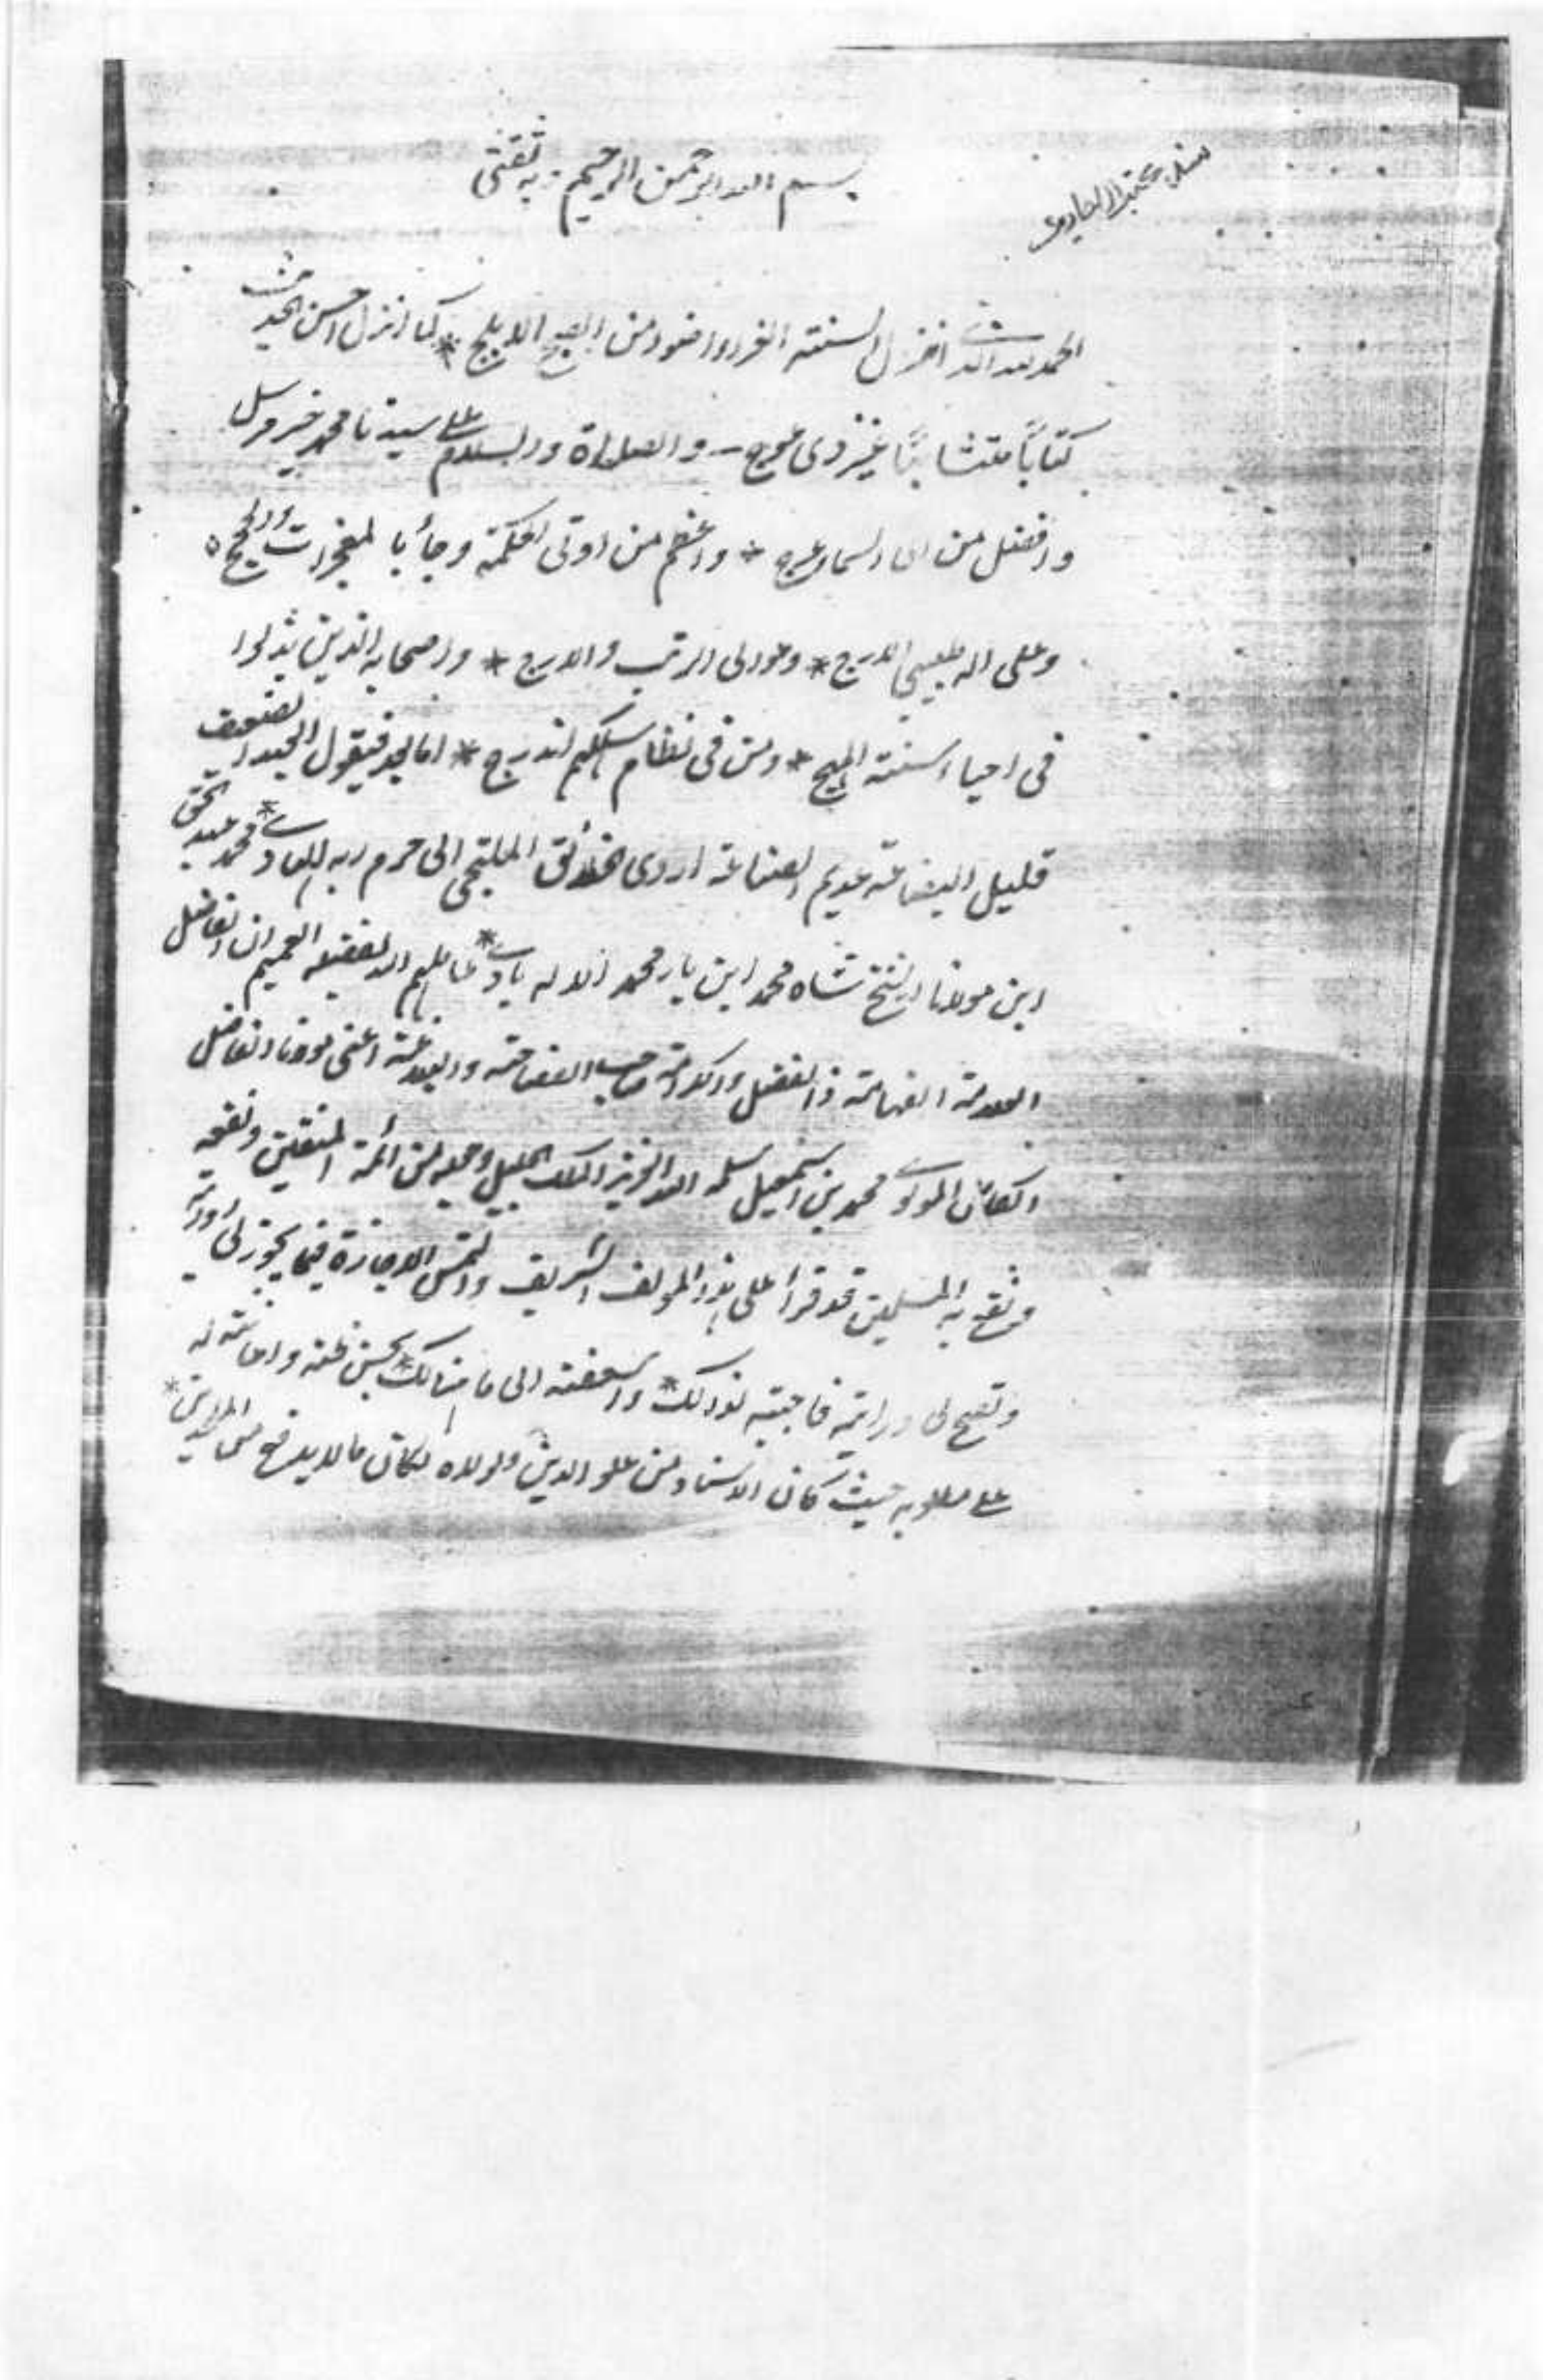 بسم الله الرحمن الرحيم وبه ثقتي
الحمد لله الذي انزل السنة الغراء اضوء من الصبح الابلج * كما انزل احسن الحديث
كتابًا متشابهًا غير ذي عوج - والصلاة والسلام على سيدنا محمد خير مرسل
وافضل من الى السماء عرج * واعظم من اوتي الحكمة وجاء بالمعجزات والحجج ه
وعلى اله الدرج * واولى الرتب والدرج * واصحابه الذين بذلوا
في احياء سنته المهج * ومن في نظام سلكهم اندرج * اما بعد فيقول العبد الضعيف
قليل البضاعة عديم الصناعة اردى الخلائق الملتجي الى حرم ربه محمد عبد الحق
ابن مولانا الشيخ شاه محمد ابن يار محمد الاله بادي * الله بفضله العميم ان الفاضل
العلامة الفهامة ذا الفضل والكرامة صاحب الفصاحة والبلاغة اعنى مولانا الفاضل
الكامل المولوي محمد بن اسمعيل سلمه الله العزيز الملك الجليل وجعله من ائمة المتقين ونفعه
ونفع به المسلمين قد قرأ على هذا المولف الشريف والتمس الاجازة فيما يجوز لي روايته
وتصح لي درايته فاجبته لذلك * واسعفته الى ما هنالك * بحسن ظنه واعانته له
على مطلوبه حيث كان الاسناد من علو الدين ولولاه لكان ما لا يدفع من